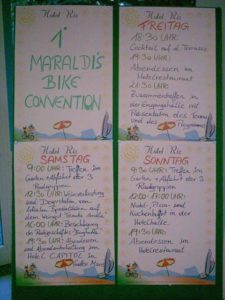 Hotel Ris
1°
MARALDI'S
BIKE
CONVENTION
Hotel Ris
FREITAG
18:30 UHR:
Cocktail auf d. Terrasse
19:30 UHR:
Abendessen im
Hotelrestaurant
21:30 UHR:
Zusammentreffen in
der Eingangshalle mit
Präsentation des Teams
und des Programms
Hotel Ris
SAMSTAG
9:00 UHR: Treffen im
Garten + Abfahrt der 3
Radgruppen
12:30 UHR: Weinverkostung
und Degustation von
lokalen Spezialitäten auf
dem Weingut
16:00 UHR: Besichtigung
19:30 UHR: Abendessen
und Abendunterhaltung im
Hotel CAPITOL in
Hotel Ris
SONNTAG
9:30 UHR: Treffen im
Garten + Abfahrt der 3
Radgruppen
12:00 - 17:00 UHR:
Nudel-, Pizza- und
Kuchenbuffet in der
Hotelhalle
19:30 UHR:
Abendessen im
Hotelrestaurant